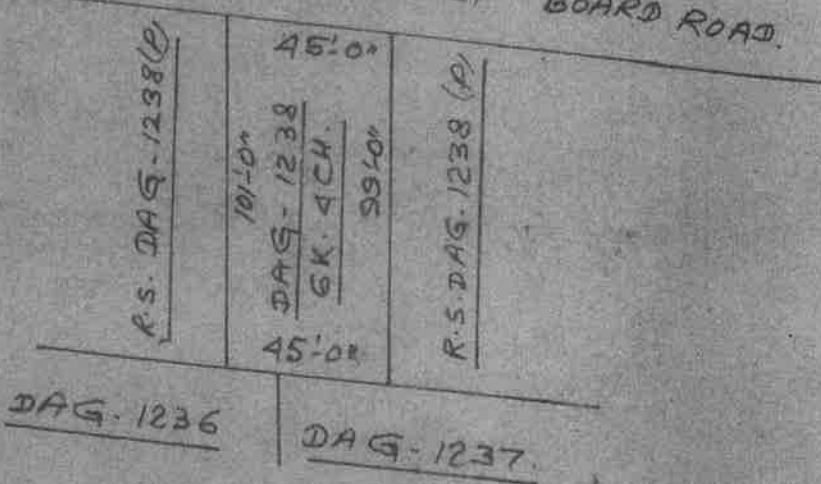 BOARD ROAD.
R.S. DAG-1238(P)
45'-0"
101'-0"
DAG-1238
6K. 4CH.
99'-0"
45'-0"
R.S. DAG. 1238 (P)
DAG. 1236
DAG-1237.